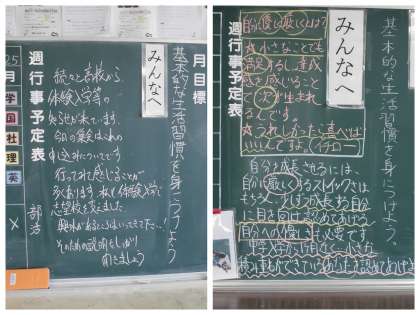 月目標
基本的な生活習慣を身につけよう
みんなへ
続々と高校から
体験入学等の
お知らせが来ています。
今日の集会はこれの
申込みについてです
行ってみて感じることが
多くあります 私も体験入学で
志望校を変えました
興味があるところはいってきて下さい!
そのための説明をしっかり
聞きましょう
週行事予定表
月
学
国
社
理
英
×
部活
基本的な生活習慣を身につけよう。
みんなへ
自分に優しく厳しくとは?
小さなことでも
満足するし、達成
感を感じること
で次が生まれ
るんです。
うれしかったら喜べば
いいんですよ。(イチロー)
自分を成長させるには、
自分に厳しくするストイックさは
もちろん、少しずつ成長する自分
に目を向け認めてあげる
自分への優しさも必要です
小さな
積み重ねができているあなたを認めてあげて
週行事予定表